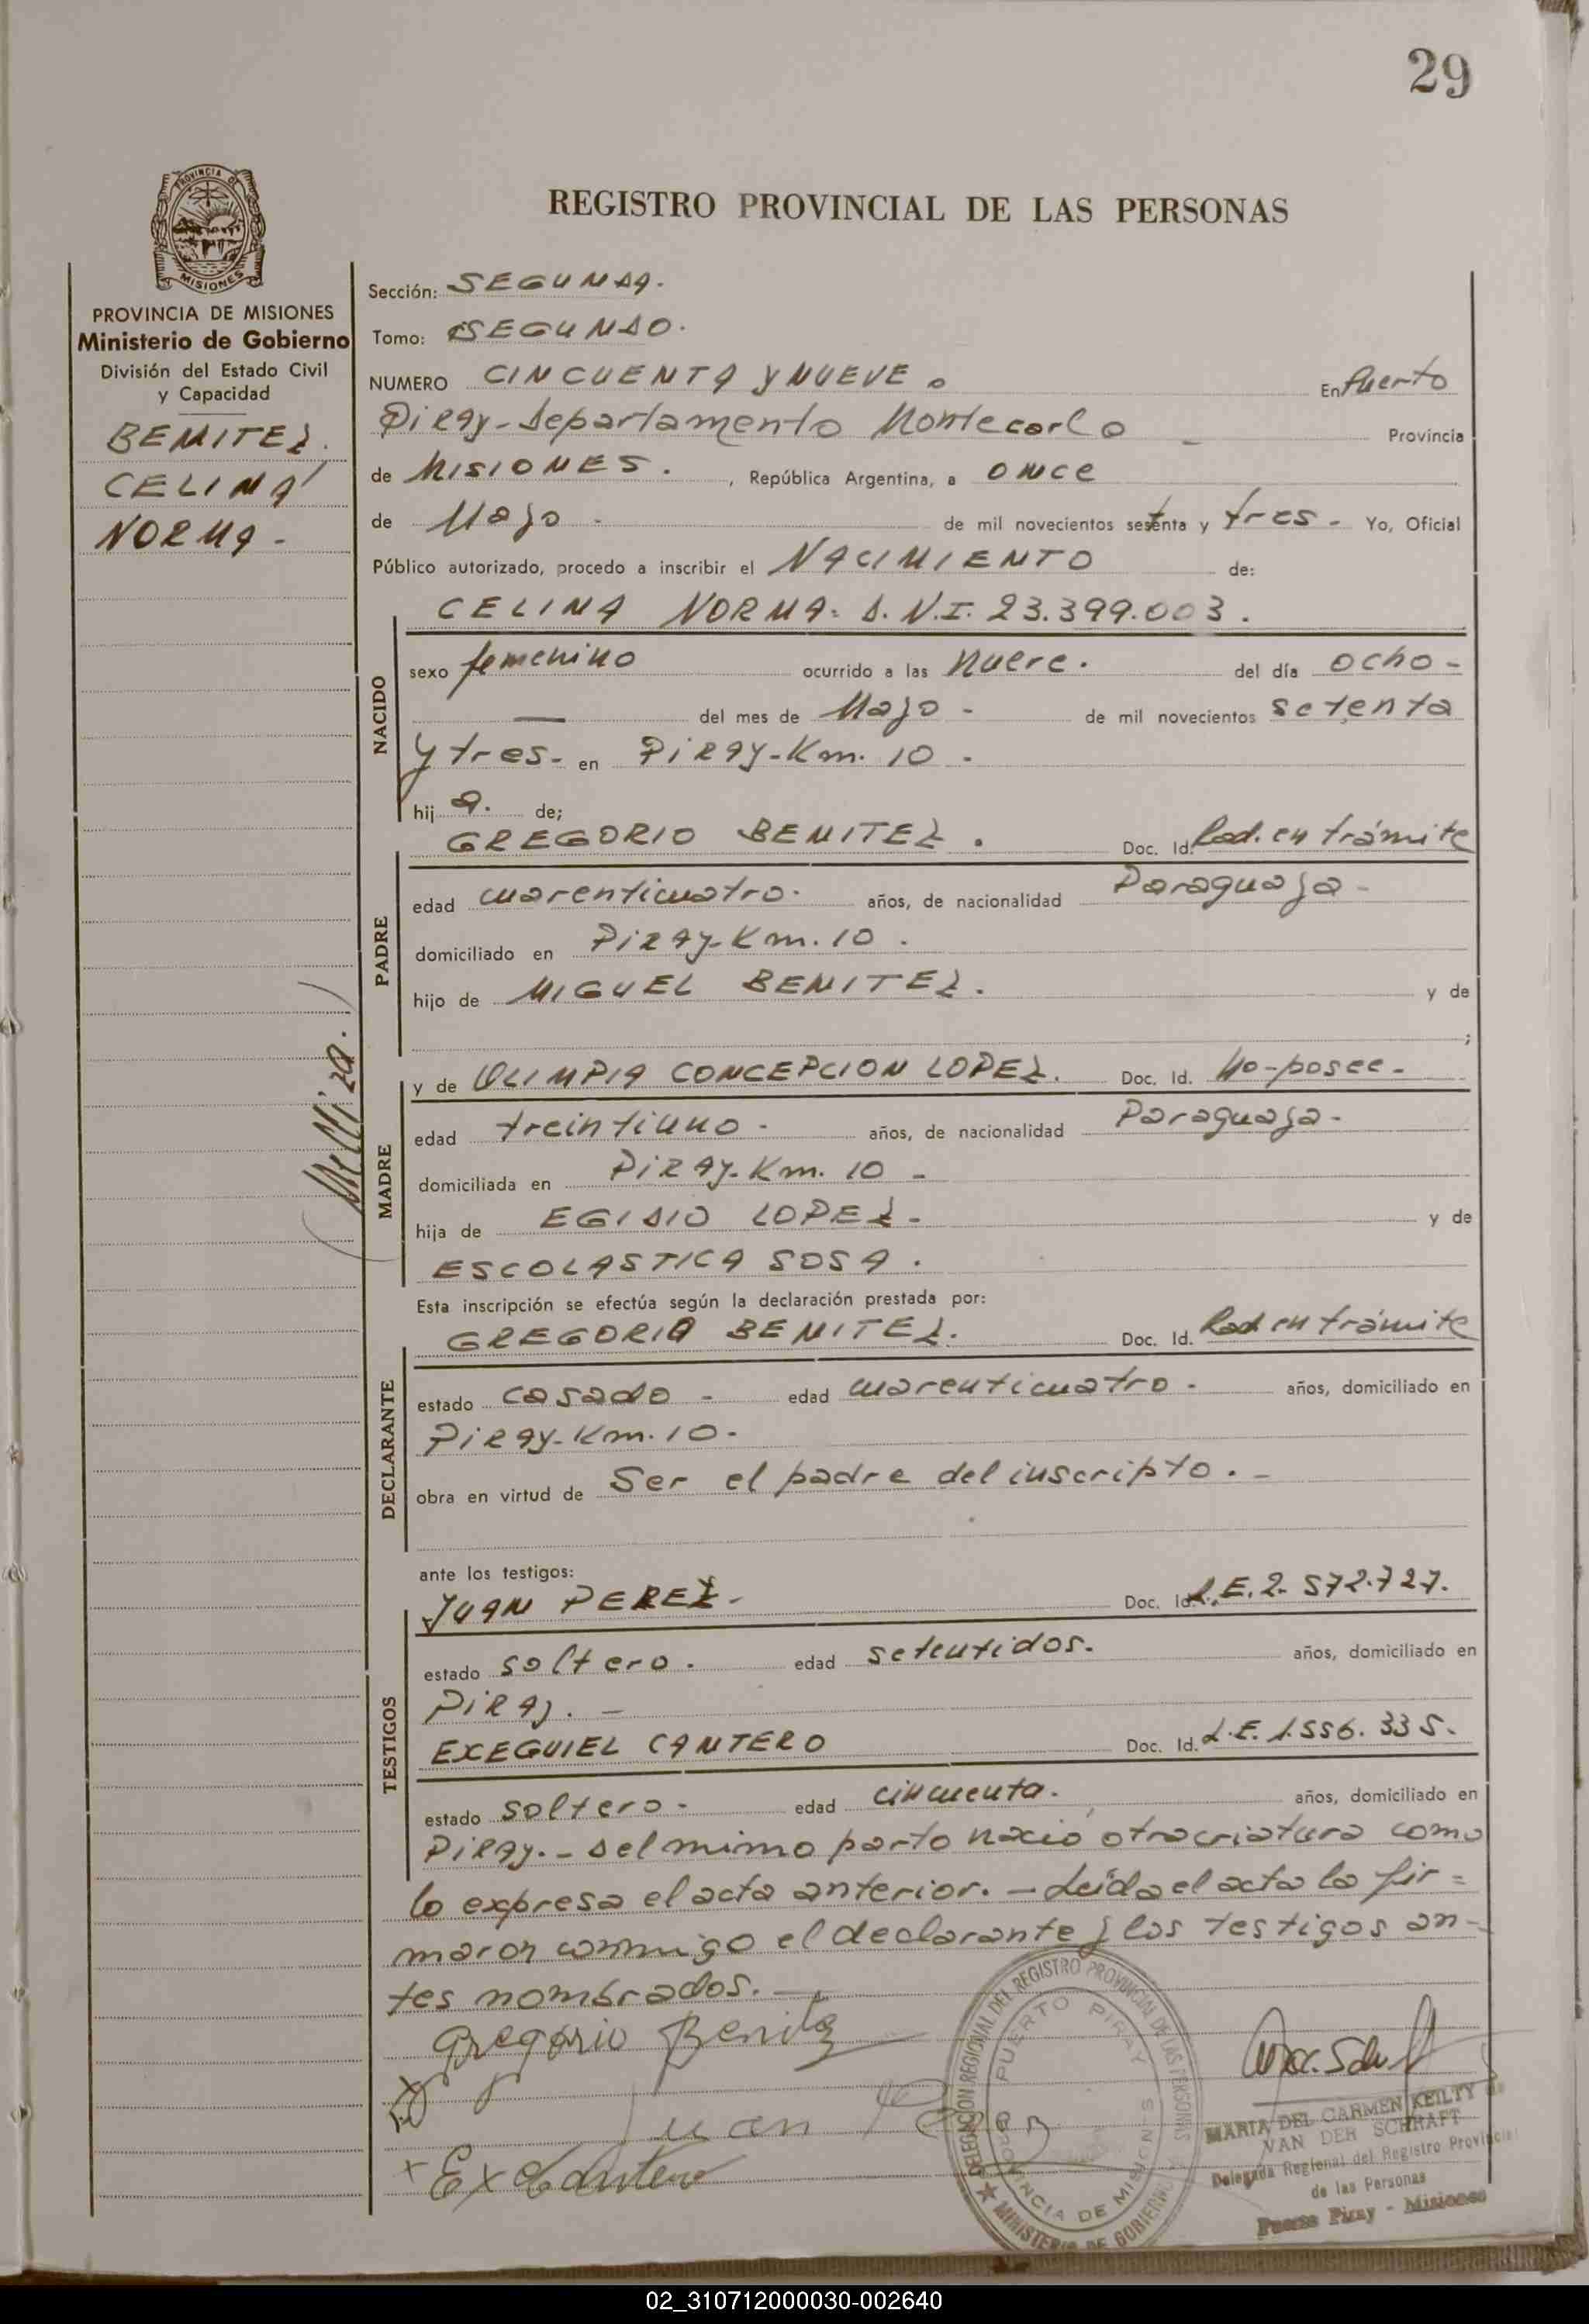 29
PROVINCIA DE
MISIONES
REGISTRO PROVINCIAL DE LAS PERSONAS
PROVINCIA DE MISIONES
Ministerio de Gobierno
División del Estado Civil
y Capacidad
BENITEZ.
CELINA
NORMA -
(Melliza.)
Sección: SEGUNDA.
Tomo: SEGUNDO.
NUMERO CINCUENTA Y NUEVE. En Puerto
Piray - Departamento Montecarlo - Provincia
de MISIONES. , República Argentina, a once
de Mayo - de mil novecientos setenta y tres - Yo, Oficial
Público autorizado, procedo a inscribir el NACIMIENTO de:
CELINA NORMA - D.N.I. 23.399.003.
NACIDO
sexo femenino ocurrido a las nueve. del día ocho -
— del mes de Mayo - de mil novecientos setenta
y tres - en Piray - Km. 10 -
hij a. de;
GREGORIO BENITEZ. Doc. Id. Rad. en trámite
PADRE
edad cuarenticuatro. años, de nacionalidad Paraguaya -
domiciliado en Piray - Km. 10.
hijo de MIGUEL BENITEZ. y de
;
y de OLIMPIA CONCEPCION LOPEZ. Doc. Id. No - posee -
MADRE
edad treintiuno - años, de nacionalidad Paraguaya -
domiciliada en Piray - Km. 10 -
hija de EGIDIO LOPEZ - y de
ESCOLASTICA SOSA.
Esta inscripción se efectúa según la declaración prestada por:
GREGORIO BENITEZ. Doc. Id. Rad en trámite
DECLARANTE
estado casado - edad cuarenticuatro - años, domiciliado en
Piray - Km. 10 -
obra en virtud de Ser el padre del inscripto. -
ante los testigos:
JUAN PEREZ - Doc. Id. L.E. 2.572.727.
TESTIGOS
estado soltero. edad setentidos. años, domiciliado en
Piray. -
EXEGUIEL CANTERO Doc. Id. L.E. 1.556.335.
estado soltero - edad cincuenta. años, domiciliado en
Piray. - Del mimo parto nació otra criatura como
lo expresa el acta anterior. - Leída el acta la fir =
maron conmigo el declarante y los testigos an -
tes nombrados. -
Gregorio Benitez
Juan
x Ex Cantero
DELEGACION REGIONAL DEL REGISTRO PROVINCIAL DE LAS PERSONAS
MINISTERIO DE GOBIERNO
PUERTO PIRAY
PROVINCIA DE MISIONES
MARIA DEL CARMEN KEILTY de
VAN DER SCHRAFT
Delegada Regional del Registro Provincial
de las Personas
Puerto Piray - Misiones
02_310712000030-002640